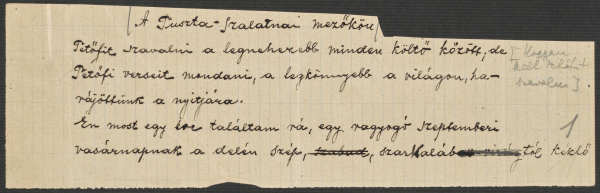 (A Puszta-Szalatnai mezőkön)
Petőfit szavalni a legnehezebb minden költő között, de
Petőfi verseit mondani, a legkönnyebb a világon, ha
rájöttünk a nyitjára.
Én most egy éve találtam rá, egy ragyogó szeptemberi
vasárnapnak a delén szép, szabad, szarkaláb virágtól kéklő
[Hogyan
kell Petőfit
szavalni]
1